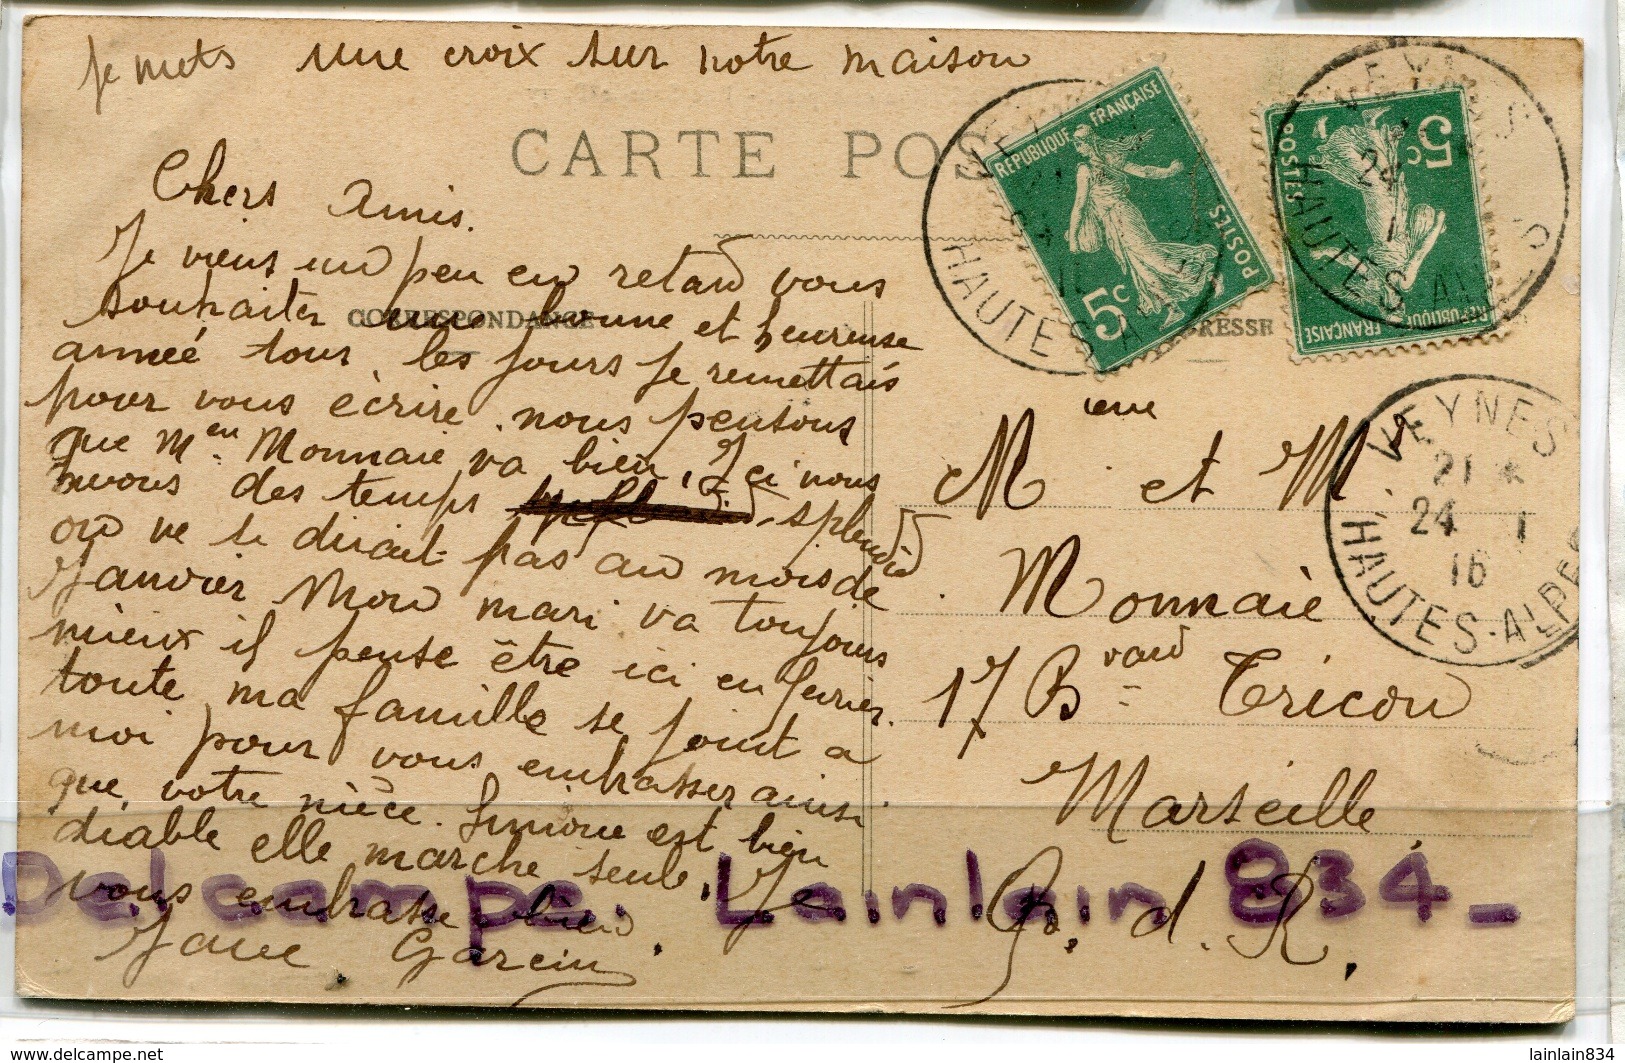 Je mets une croix sur notre maison
CARTE POS
Chers Amis.
Je viens un peu en retard vous
souhaiter une bonne et heureuse
CORRESPONDANCE
année tous les jours je remettais
pour vous écrire. nous pensons
que Meu Monnaie va bien, Ici nous
avons des temps splendid
on ne se dirait pas au mois de
Janvier Mon mari va toujours
mieux il pense être ici en fevrier.
toute ma famille se joint a
moi pour vous embrasser ainsi
que votre nièce. Simone est bien
diable elle marche seule. Je
vous embrasse bien
Jane Garcin
RESSE
M ieur et M
Monnaie
17 Bvard Tricon
Marseille
B. d. R.
REPUBLIQUE FRANÇAISE
POSTES
5c
REPUBLIQUE FRANÇAISE
POSTES
5c
VEYNES
24 1
HAUTES-AL
HAUTES A
VEYNES
21 *
24 1
16
HAUTES-ALPES
Delcampe. Lainlain 834_
www.delcampe.net
lainlain834